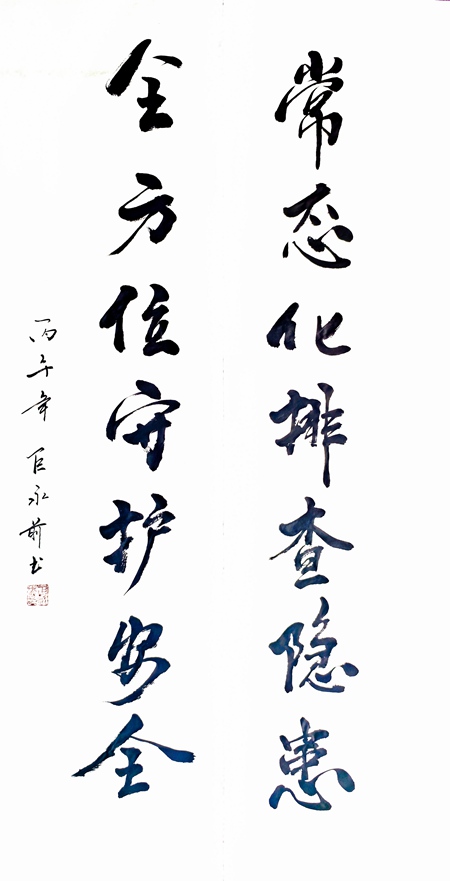 常态化排查隐患
全方位守护安全
丙午年 巨永前书